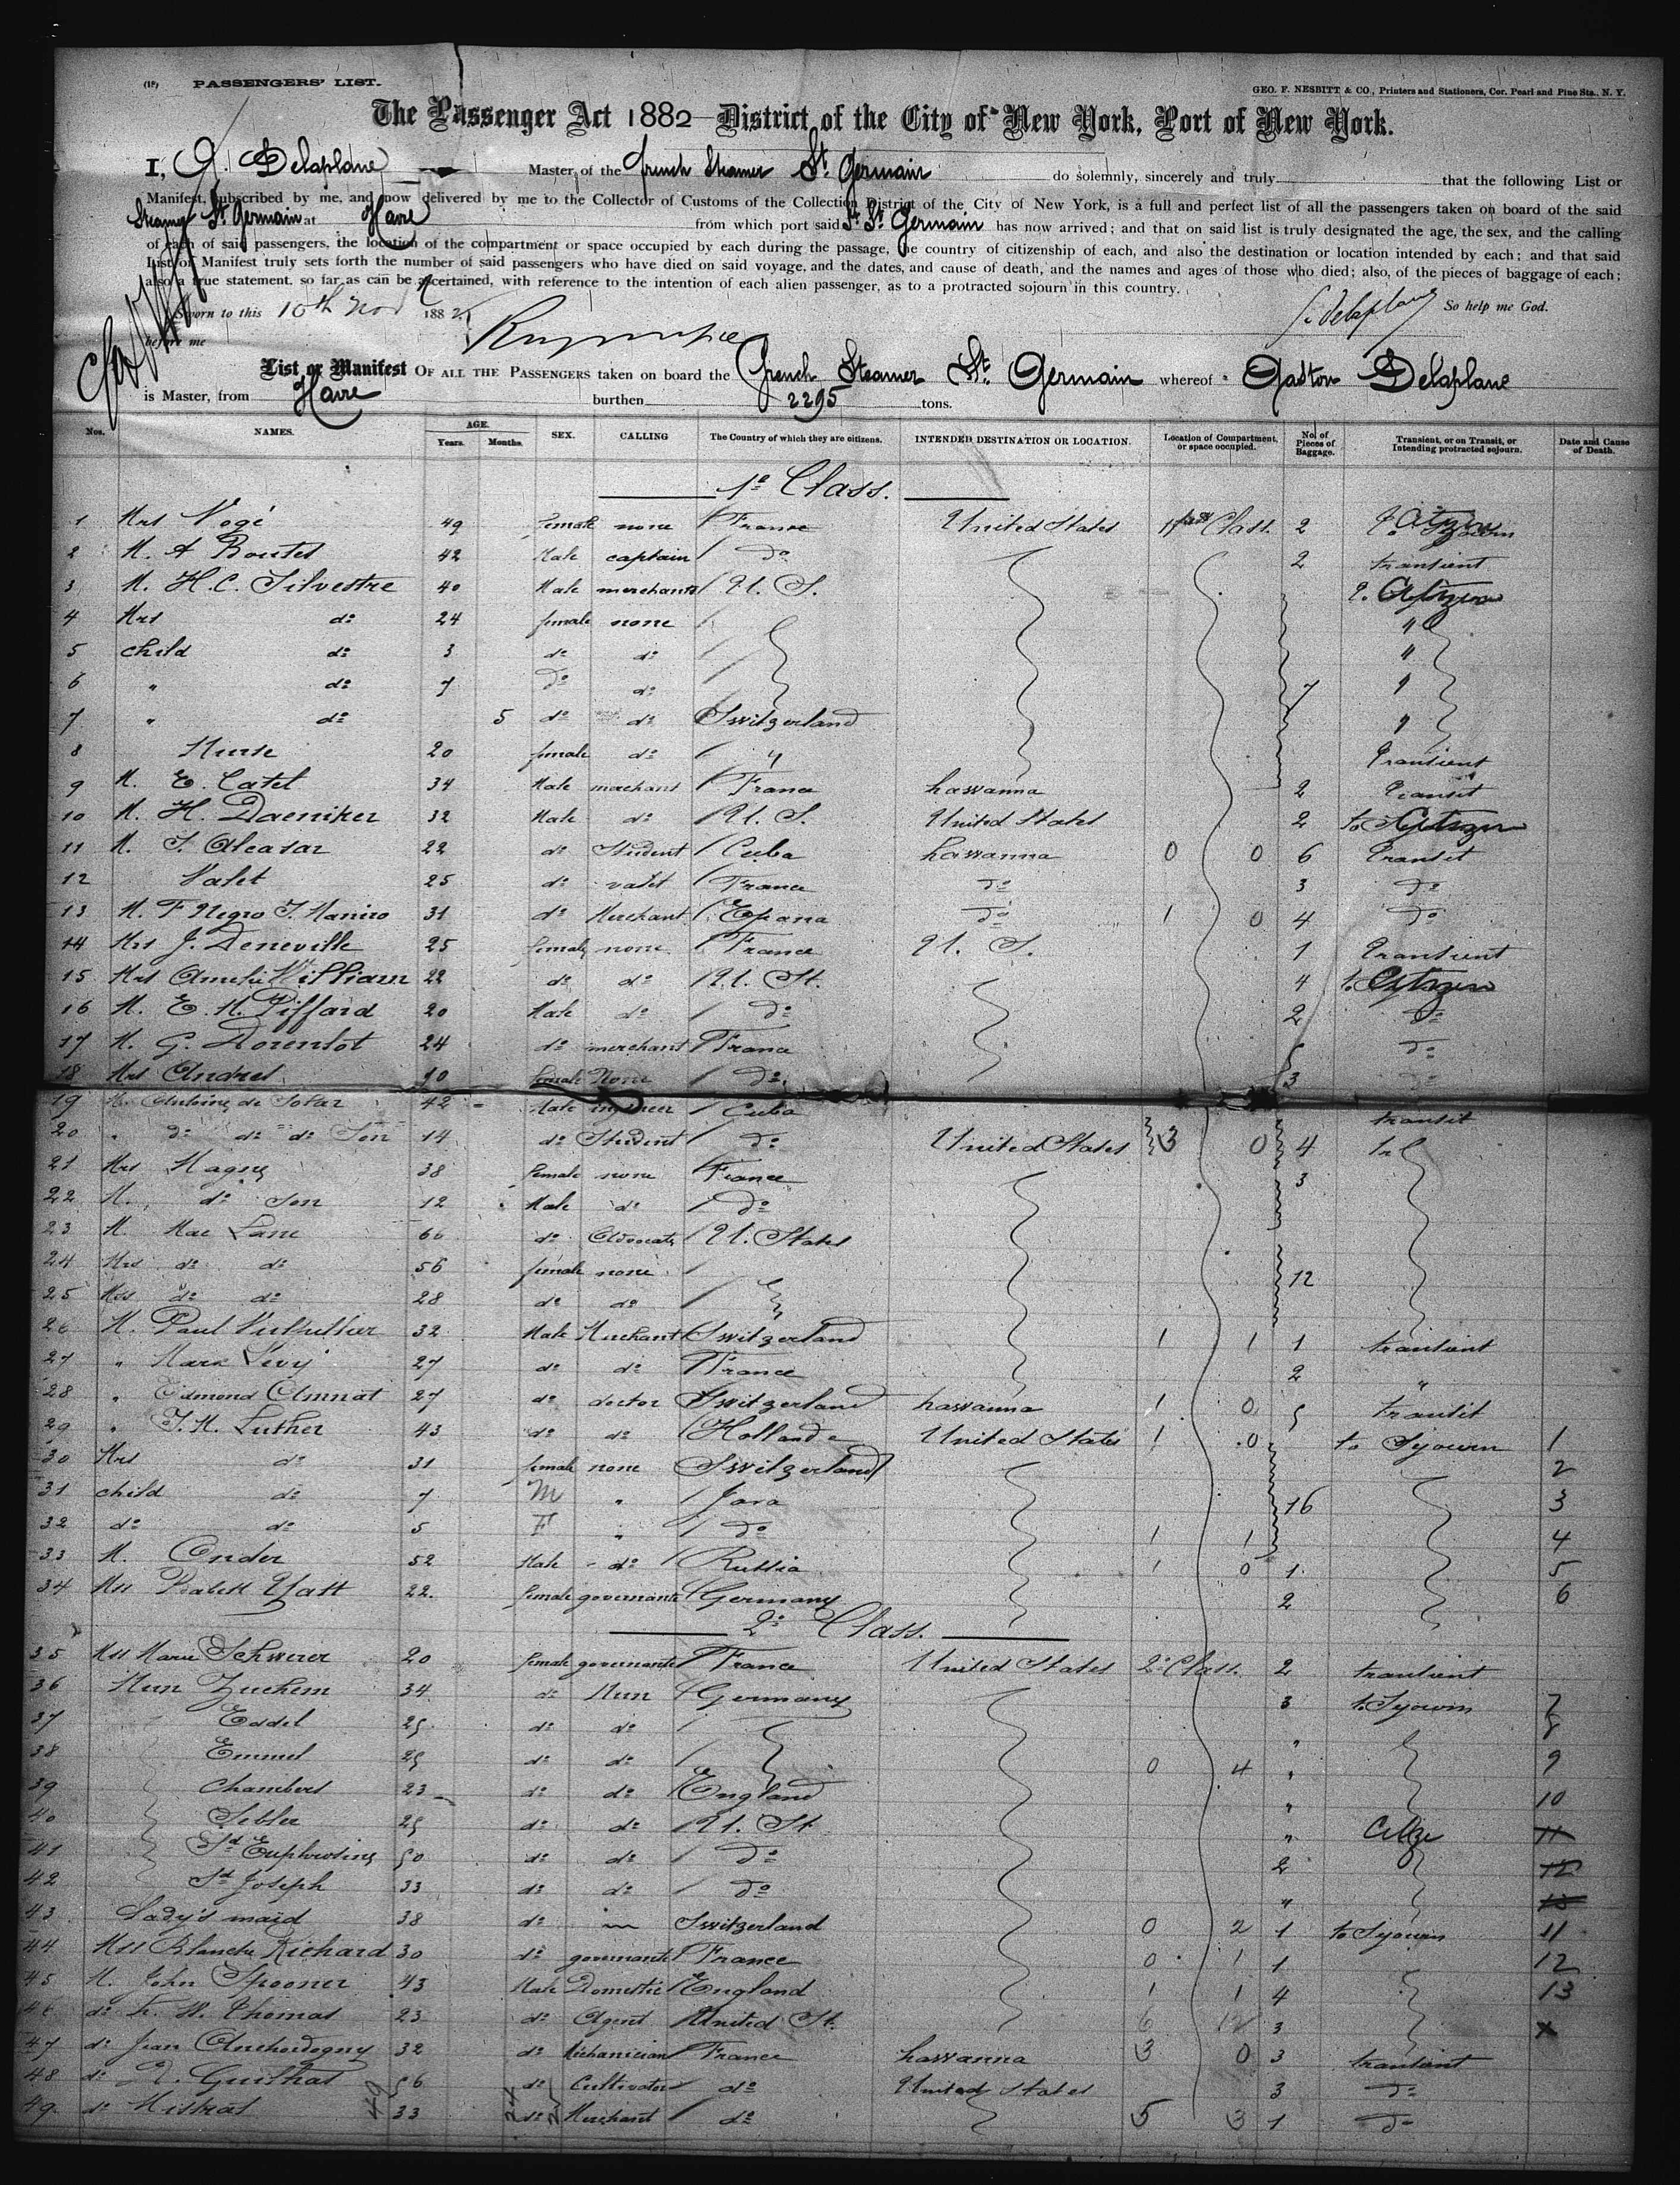 (18) PASSENGERS' LIST.
GEO. F. NESBITT & CO., Printers and Stationers, Cor. Pearl and Pine Sts., N. Y.
The Passenger Act 1882 District of the City of New York, Port of New York.
I, G. Delaplane Master of the french Steamer St. Germain do solemnly, sincerely and truly that the following List or
Manifest, subscribed by me, and now delivered by me to the Collector of Customs of the Collection District of the City of New York, is a full and perfect list of all the passengers taken on board of the said
Steamer St. Germain at Havre from which port said St. St. Germain has now arrived; and that on said list is truly designated the age, the sex, and the calling
of each of said passengers, the location of the compartment or space occupied by each during the passage, the country of citizenship of each, and also the destination or location intended by each; and that said
List or Manifest truly sets forth the number of said passengers who have died on said voyage, and the dates, and cause of death, and the names and ages of those who died; also, of the pieces of baggage of each;
also a true statement, so far as can be ascertained, with reference to the intention of each alien passenger, as to a protracted sojourn in this country.
Sworn to this 10th Nov 1882 G. Delaplane So help me God.
before me
List or Manifest OF ALL THE PASSENGERS taken on board the french Steamer St. Germain whereof Gaston Delaplane
is Master, from Havre burthen 2295 tons.
Nos. NAMES. AGE. Years. Months. SEX. CALLING The Country of which they are citizens. INTENDED DESTINATION OR LOCATION. Location of Compartment, or space occupied. No. of Pieces of Baggage. Transient, or on Transit, or Intending protracted sojourn. Date and Cause of Death.
1e Class.
1 Mrs Vogé 49 female none France United States 1st Class. 2
2 M. A Boutet 42 Male captain do 2 transient
3 M. H.C. Silvestre 40 Male merchant U. S. Citizen
4 Mrs do 24 female none "
5 child do 3 do do "
6 " do 7 do do 7 "
7 " do 5 do do Switzerland "
8 Nurse 20 female do " transient
9 M. E. Catel 34 Male merchant France havanna 2 transit
10 M. H. Daeniker 32 Male do U. S. United States 2 Citizen
11 M. J. Aleasar 22 do Student Cuba havanna 0 0 6 transit
12 Valet 25 do valet France do 3 do
13 M. F Negro J. Maniro 31 do Merchant Epana do 1 0 4 do
14 Mrs J. Deneville 25 female none France U. S. 1 transient
15 Mrs Amelie William 22 do do U. St. 4 Citizen
16 M. E. H. Piffard 20 Male do do 2 do
17 M. G. Dorentot 24 do merchant France do
18 Mrs Andres 40 female None do 3 do
19 M. Antoine de Sotar 42 Male engineer Cuba transit
20 " do do do Son 14 do Student do United States 3 0 4
21 Mrs Magny 38 female none France 3
22 M. do Son 12 Male do do
23 M. Mac Lane 66 do Advocate U. States
24 Mrs do do 56 female none 12
25 Mss do do 28 do do
26 M. Paul 32 Male Merchant Switzerland 1 1 1 transient
27 " Marx Levy 27 do do France 2 "
28 " Edmond Amnat 27 do doctor Switzerland havanna 1 0 5 transit
29 " J. H. Luther 43 do do Holland United States 1 0 to Sjourn 1
30 Mrs do 31 female none Switzerland 2
31 child do 7 M " Java 16 3
32 do do 5 F " do 1 1 4
33 M. Onder 52 Male do Russia 1 0 1 5
34 Mss 22 female governante Germany 2 6
2e Class.
35 Mss Marie Schwerer 20 female governante France United States 2e Class. 2 transient
36 Nun Zuchem 34 do Nun Germany 3 to Sjourn 7
37 Eddel 25 do do " 8
38 Emmel 25 do do 0 4 " 9
39 Chambers 23 do do England " 10
40 Sibler 25 do do U. St " Citize 11
41 St Euphrosine 50 do do do 2 12
42 St Joseph 33 do do do " 13
43 Lady's maid 38 do Switzerland 0 2 1 to Sjourn 11
44 Mss Blanche Richard 30 do governante France 0 1 1 12
45 M. John Spooner 43 Male Domestic England 1 1 4 13
46 do W. Thomas 23 do Agent United St. 6 3 x
47 do Jean Anchordogny 32 do Mechanician France havanna 3 0 3 transient
48 do Guishat 56 do Cultivator do United States 3 do
49 do Mistras 33 do Merchant do 5 3 1 do